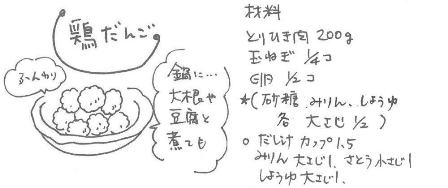 鶏だんご
ふ〜んわり
鍋に…
大根や
豆腐と
煮ても
材料
とりひき肉 200g
玉ねぎ 1/4コ
卵 1/2コ
★(砂糖 みりん、しょうゆ
各 大さじ 1/2)
○ だし汁 カップ1.5
みりん 大さじ1、さとう小さじ1
しょうゆ 大さじ1.